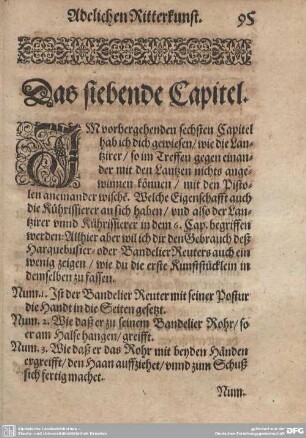 Adelichen Ritterkunst. 95
Das siebende Capitel.
IM vorhergehenden sechsten Capitel
hab ich dich gewiesen / wie die Lan-
tzirer / so im Treffen gegen einan-
der mit den Lantzen nichts ange-
winnen können / mit den Pisto-
len aneinander wische. Welche Eigenschafft auch
die Kührissierer an sich haben / vnd also der Lan-
tzirer vnnd Kührissierer in dem 6. Cap. begriffen
werden: Allhier aber wil ich dir den Gebrauch deß
Harquebusier- oder Bandelier Reuters auch ein
wenig zeigen / wie du die erste Kunststücklein in
demselben zu fassen.
Num. 1. Ist der Bandelier Reuter mit seiner Postur
die Handt in die Seiten gesetzt.
Num. 2. Wie daß er zu seinem Bandelier Rohr / so
er am Halse hangen / greifft.
Num. 3. Wie daß er das Rohr mit beyden Händen
ergreifft / den Haan auffziehet / vnnd zum Schuß
sich fertig machet.
Num.